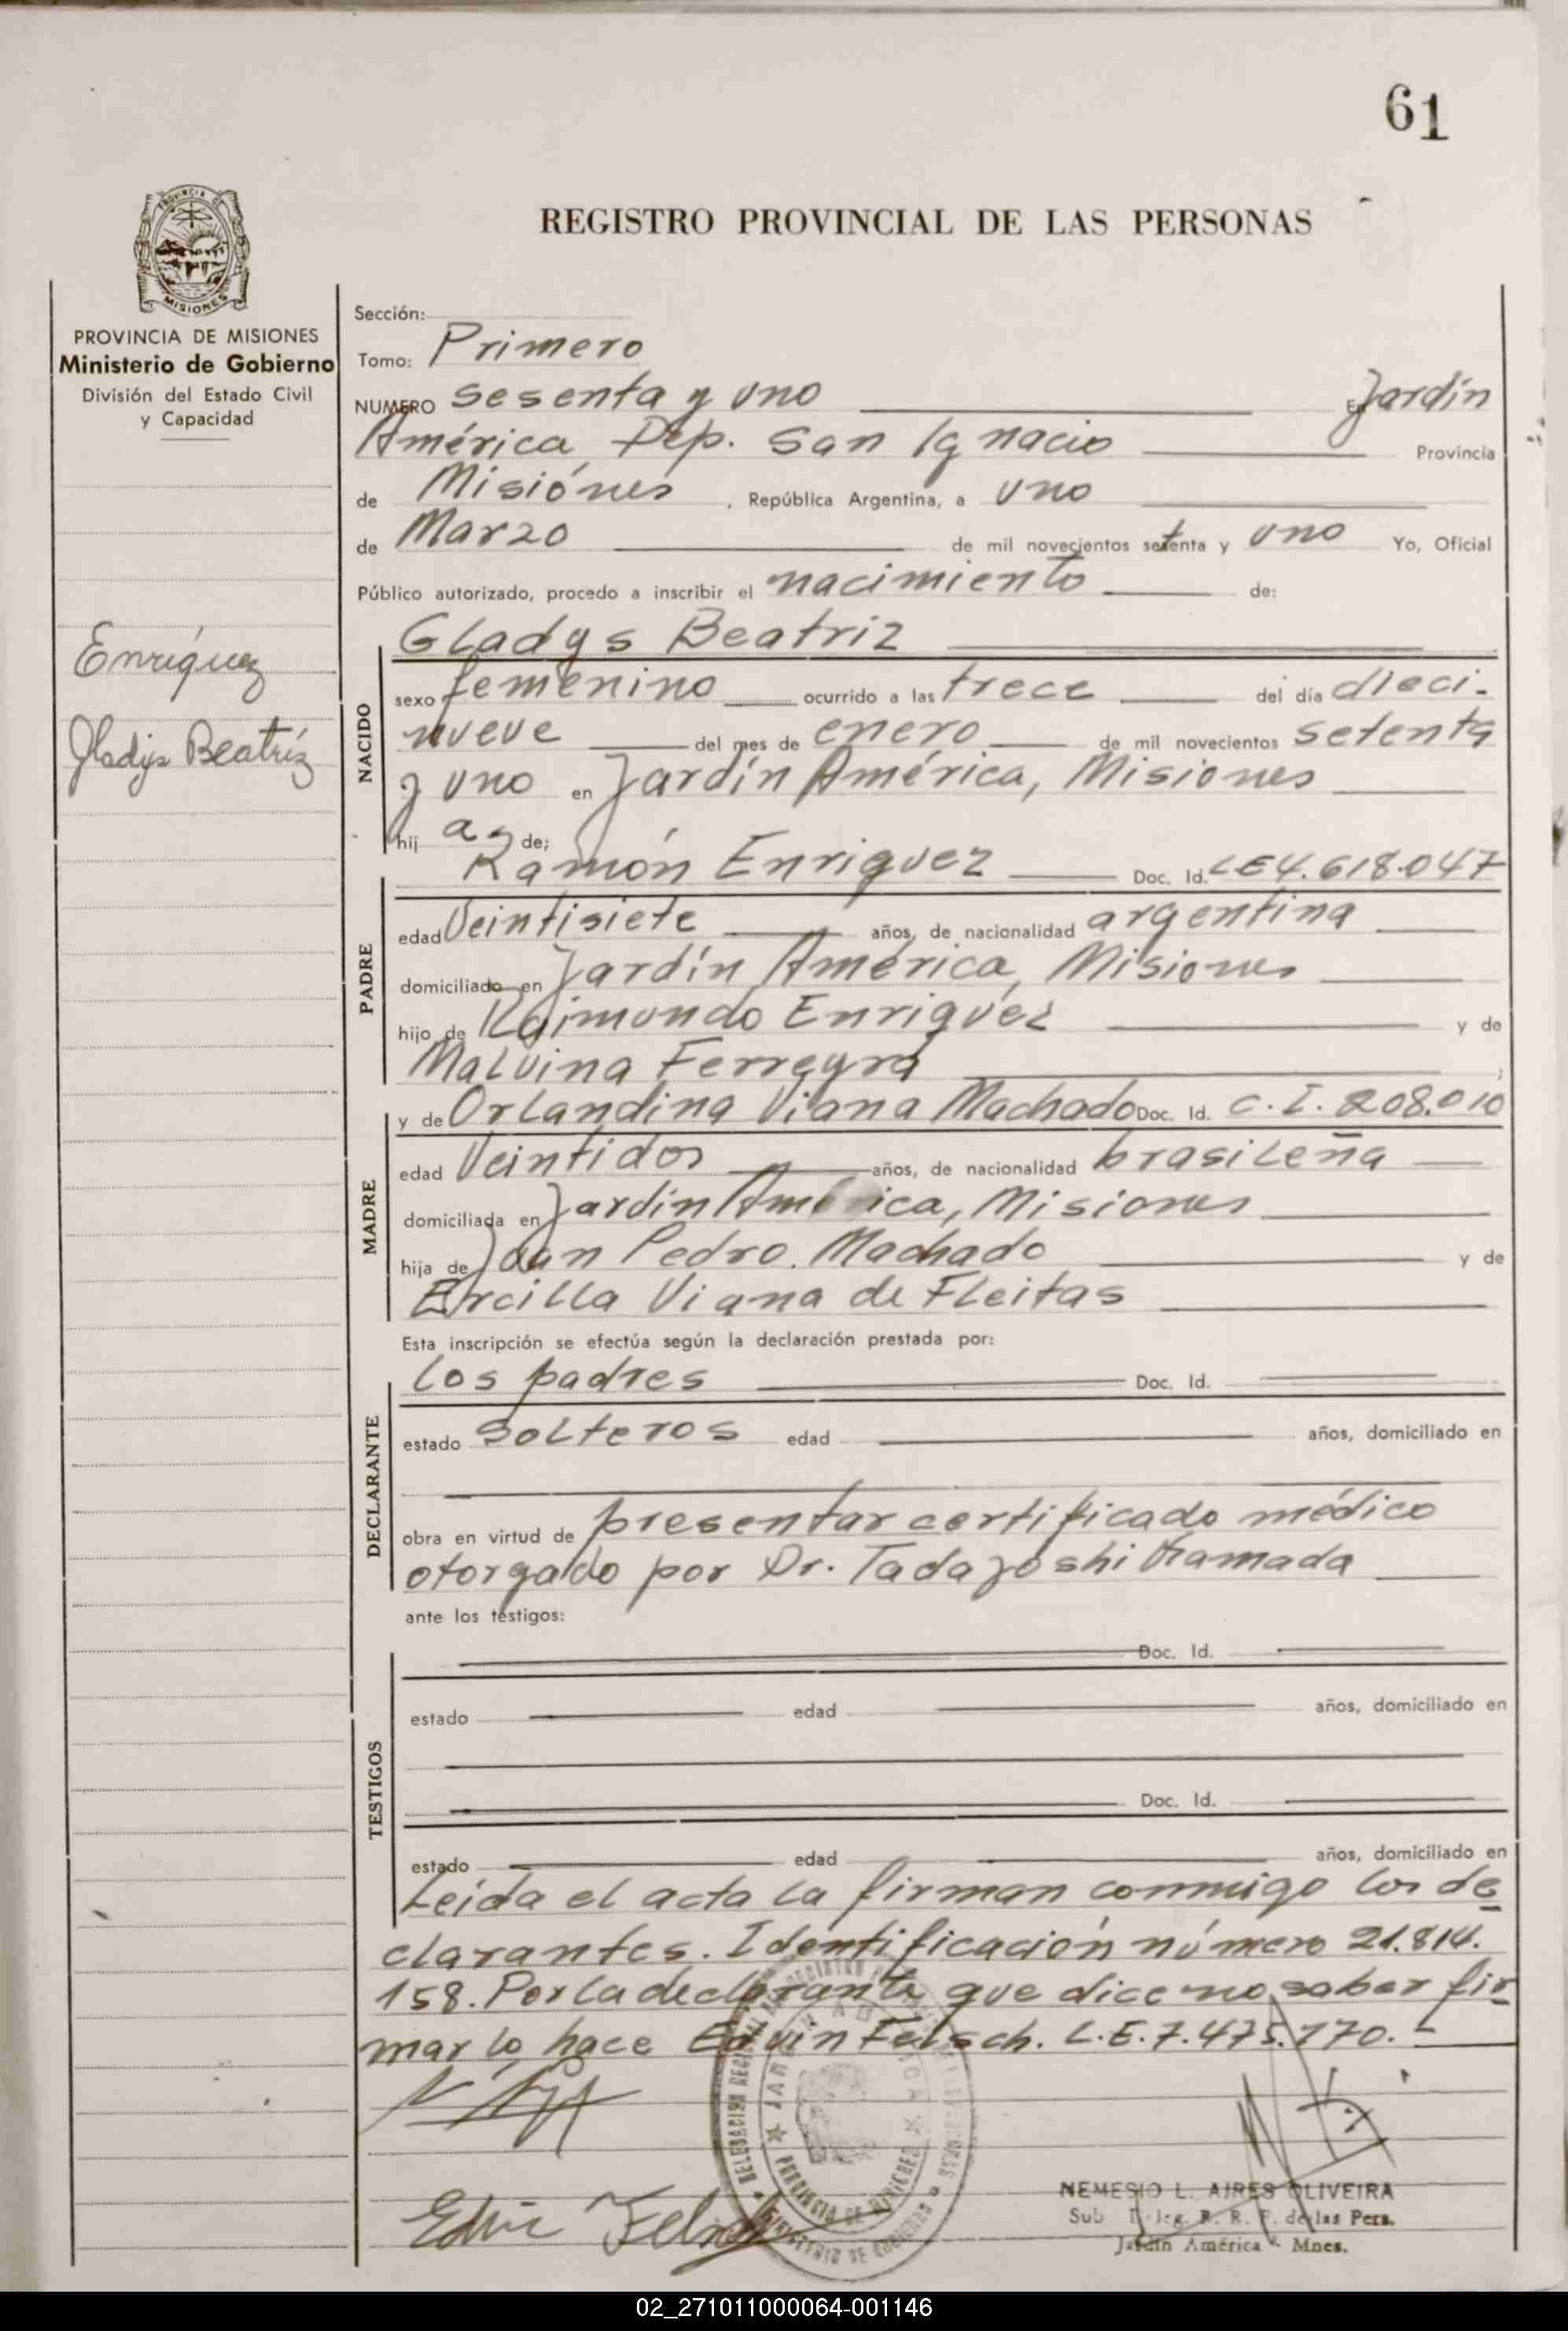 61
REGISTRO PROVINCIAL DE LAS PERSONAS
PROVINCIA DE
MISIONES
PROVINCIA DE MISIONES
Ministerio de Gobierno
División del Estado Civil
y Capacidad
Enríquez
Gladys Beatríz
Sección:
Tomo: Primero
NUMERO sesenta y uno En Jardín
América, Dep. San Ignacio Provincia
de Misiónes, República Argentina, a uno
de Marzo de mil novecientos setenta y uno Yo, Oficial
Público autorizado, procedo a inscribir el nacimiento de:
Gladys Beatriz
NACIDO
sexo femenino ocurrido a las trece del día dieci-
nueve del mes de enero de mil novecientos setenta
y uno en Jardín América, Misiones
hij a de;
Ramón Enriquez Doc. Id. LE4.618.047
PADRE
edad Veintisiete años, de nacionalidad argentina
domiciliado en Jardín América, Misiones
hijo de Raimundo Enriquez y de
Malvina Ferreyra
y de Orlandina Viana Machado Doc. Id. C.I. 208.010
MADRE
edad Veintidos años, de nacionalidad brasileña
domiciliada en Jardín América, Misiones
hija de Juan Pedro. Machado y de
Ercilla Viana de Fleitas
Esta inscripción se efectúa según la declaración prestada por:
los padres Doc. Id.
DECLARANTE
estado solteros edad años, domiciliado en
obra en virtud de presentar certificado médico
otorgado por Dr. Tadayoshi Kamada
ante los testigos:
Doc. Id.
TESTIGOS
estado edad años, domiciliado en
Doc. Id.
estado edad años, domiciliado en
Leída el acta la firman conmigo los de
clarantes. Identificación número 21.814.
158. Por la declarante que dice no saber fir
mar lo hace Edvin Felsch. L.E.7.475.170.-
PROVINCIA DE MISIONES
NEMESIO L. AIRES OLIVEIRA
Sub Deleg. R. R. P. de las Pers.
Jardín América - Mnes.
02_271011000064-001146